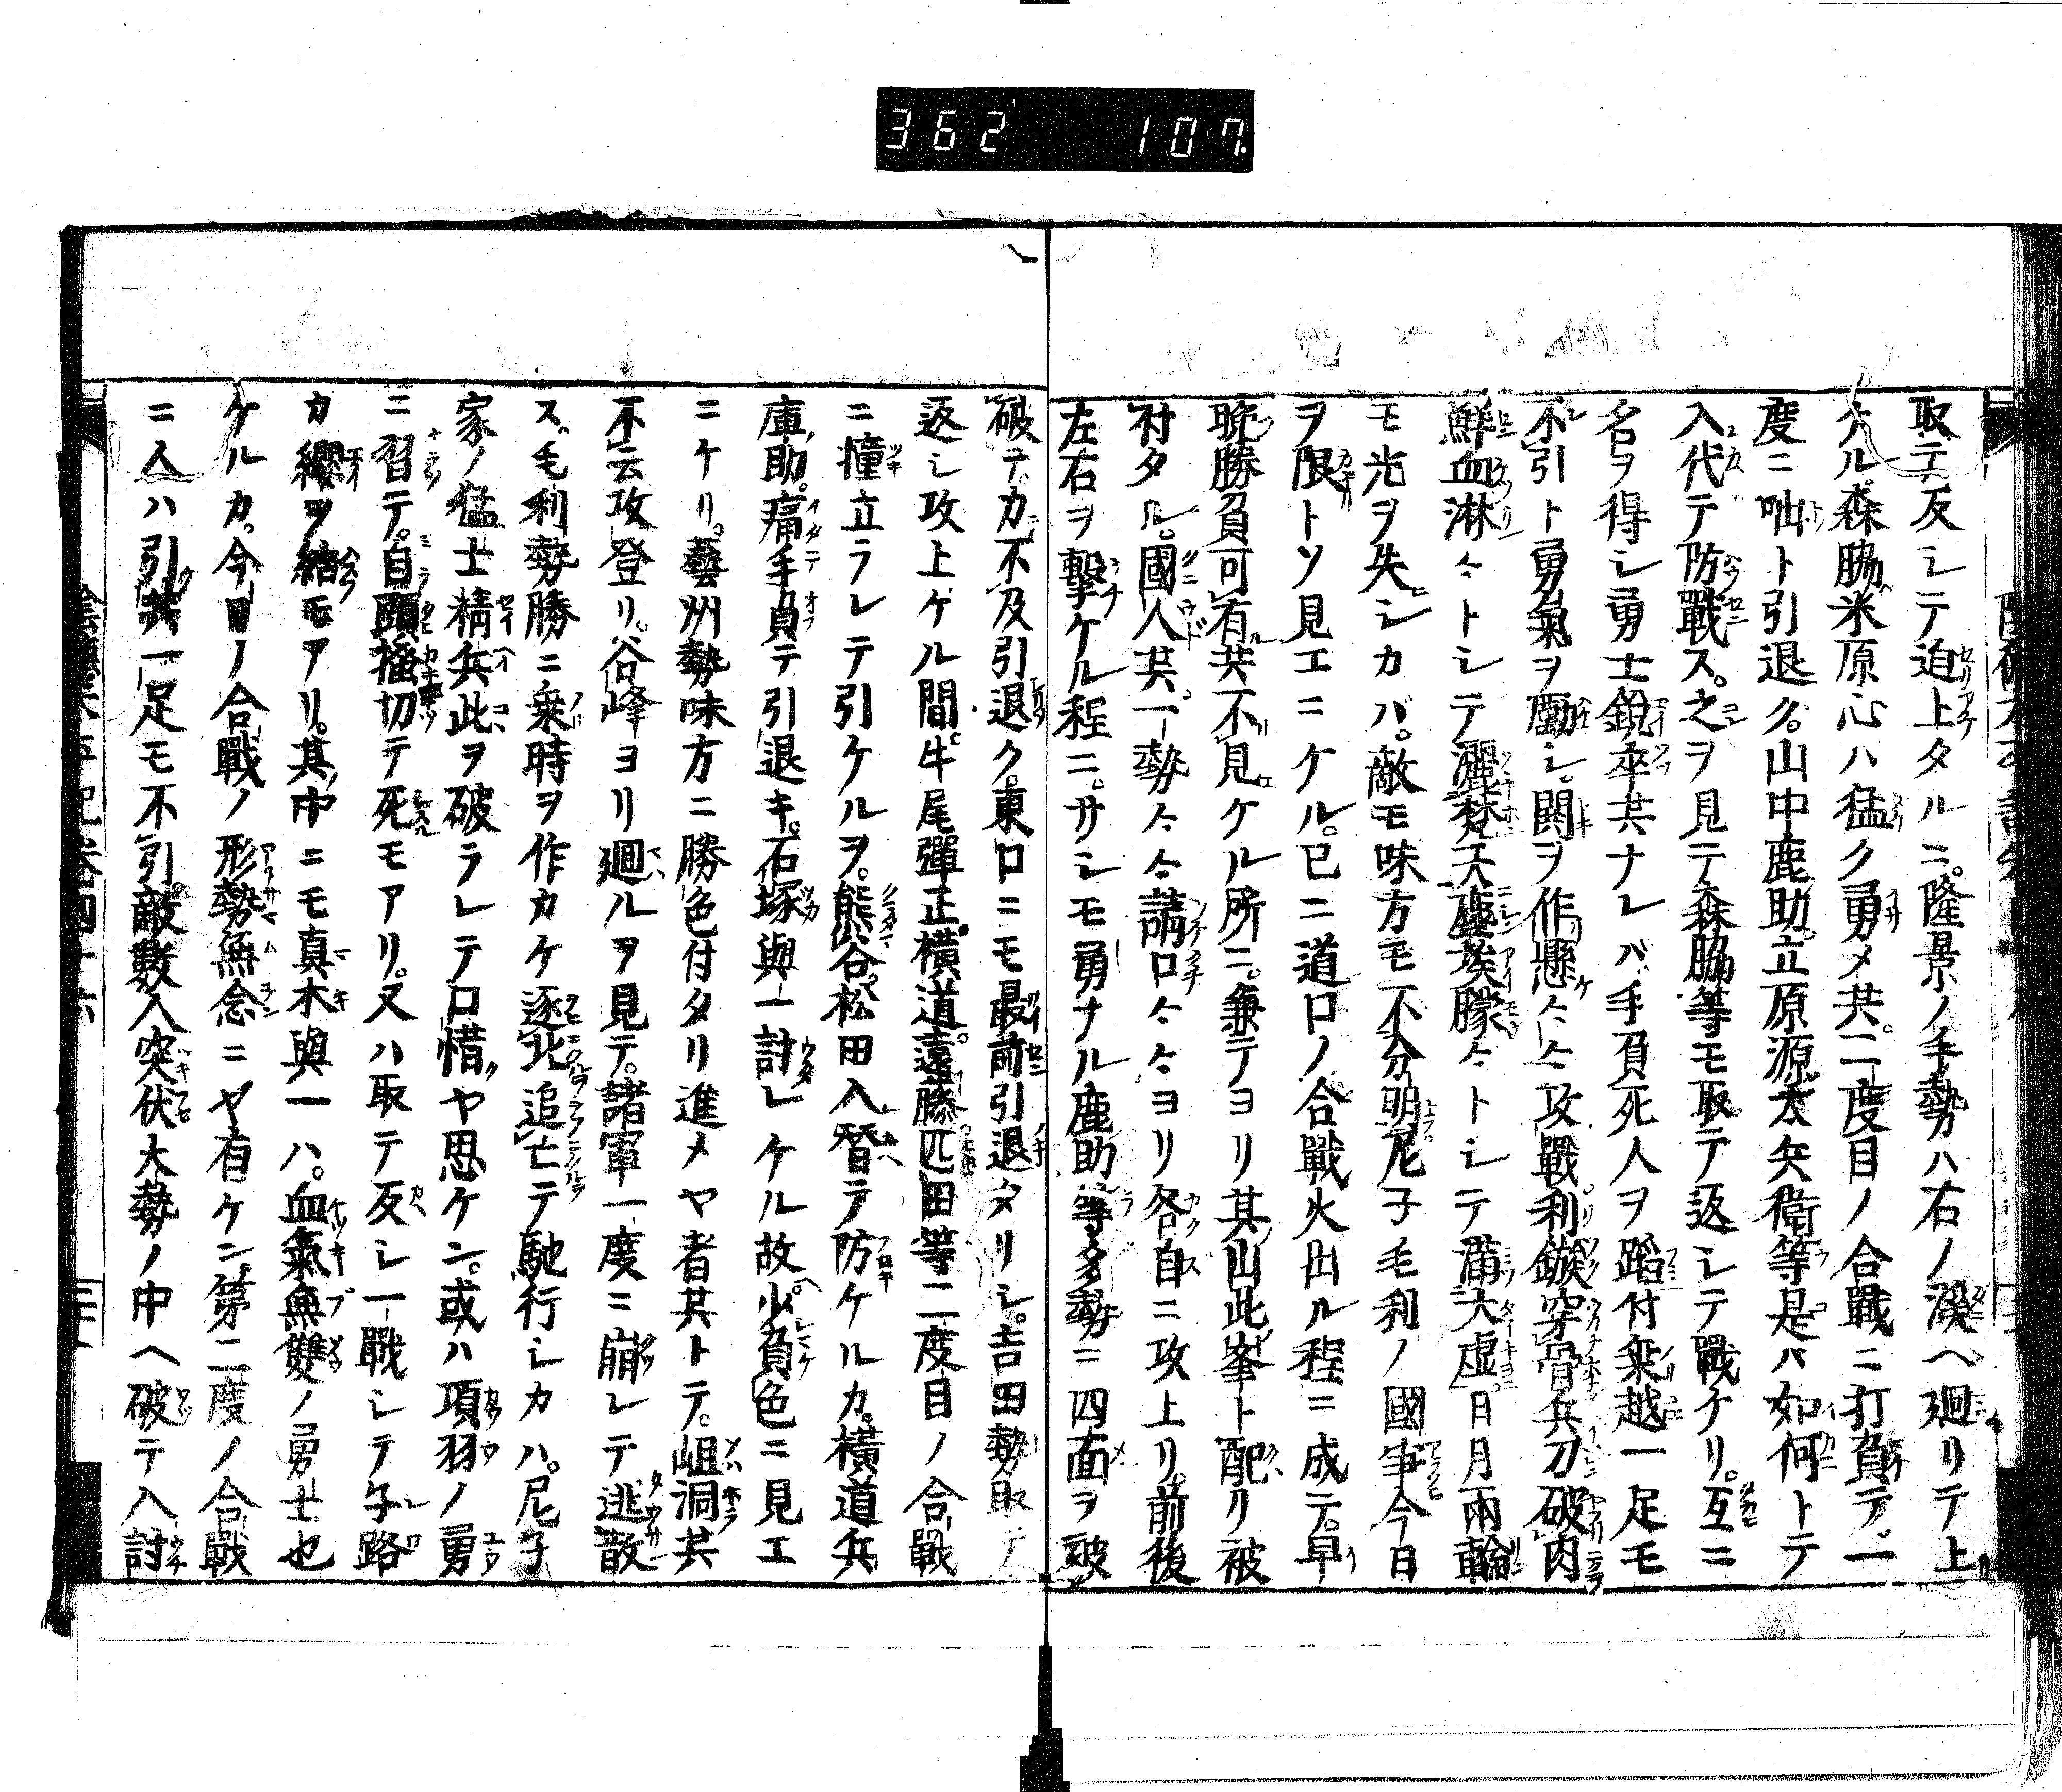 362 107.
取テ反シテ迫上タルニ。隆景ノ手勢ハ右ノ漢ヘ廻リテ上
ケル。森脇米原心ハ猛ク勇メ共。二度目ノ合戰ニ打負テ。一
度ニ咄ト引退ク。山中鹿助。立原源太兵衛等是ハ如何トテ
入代テ防戰ス。之ヲ見テ森脇等モ取テ返シテ戰ケリ。互ニ
名ヲ得シ勇士銳卒共ナレバ。手負死人ヲ蹈付乗越一足モ
不引ト勇氣ヲ勵シ。鬨ヲ作懸々々攻戰利鏃穿骨兵刀破肉
鮮血淋々トシテ灑梵天虚埃朦々トシテ満大虚。日月兩輪
モ光ヲ失シカバ。敵モ味方モ不分明尼子毛利ノ國爭今日
ヲ限トソ見エニケル。已ニ道口ノ合戰火出ル程ニ成テ。早
晩勝負可有共不見ケル所ニ。兼テヨリ其山此峯ト配リ被
村タル。國人共。一勢々々請口々々ヨリ各自ニ攻上リ。前後
左右ヲ擊ケル程ニ。サシモ勇ナル鹿助等多勢ニ四面ヲ被
破テ。力不及引退ク。東口ニモ最前引退タリシ。吉田勢取テ
返シ攻上ケル間。牛尾彈正。横道。遠藤匹田等二度目ノ合戰
ニ撞立ラレテ引ケルヲ。熊谷。松田入替テ防ケルカ。横道兵
庫助。痛手負テ引退キ。石塚與一討レケル故。少負色ニ見エ
ニケリ。藝州勢味方ニ勝色付タリ進メヤ者共トテ。岨洞共
不云攻登リ。谷峰ヨリ廻ルヲ見テ。諸軍一度ニ崩レテ逃散
ス。毛利勢勝ニ乗時ヲ作カケ逐北追亡テ馳行シカハ。尼子
家ノ猛士精兵此ヲ破ラレテ口惜ヤ思ケン。或ハ項羽ノ勇
ニ習テ。自頭搔切テ死モアリ。又ハ取テ反シ一戰シテ子路
カ纓ヲ結モアリ。其中ニモ真木與一ハ。血氣無雙ノ勇士也
ケルカ。今日ノ合戰ノ形勢無念ニヤ有ケン。第二度ノ合戰
ニ人ハ引共一足モ不引。敵數人突伏大勢ノ中ヘ破テ入討